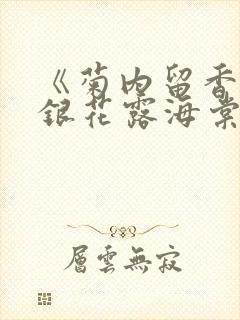 《菊内留香
銀花露海棠
層雲無寂